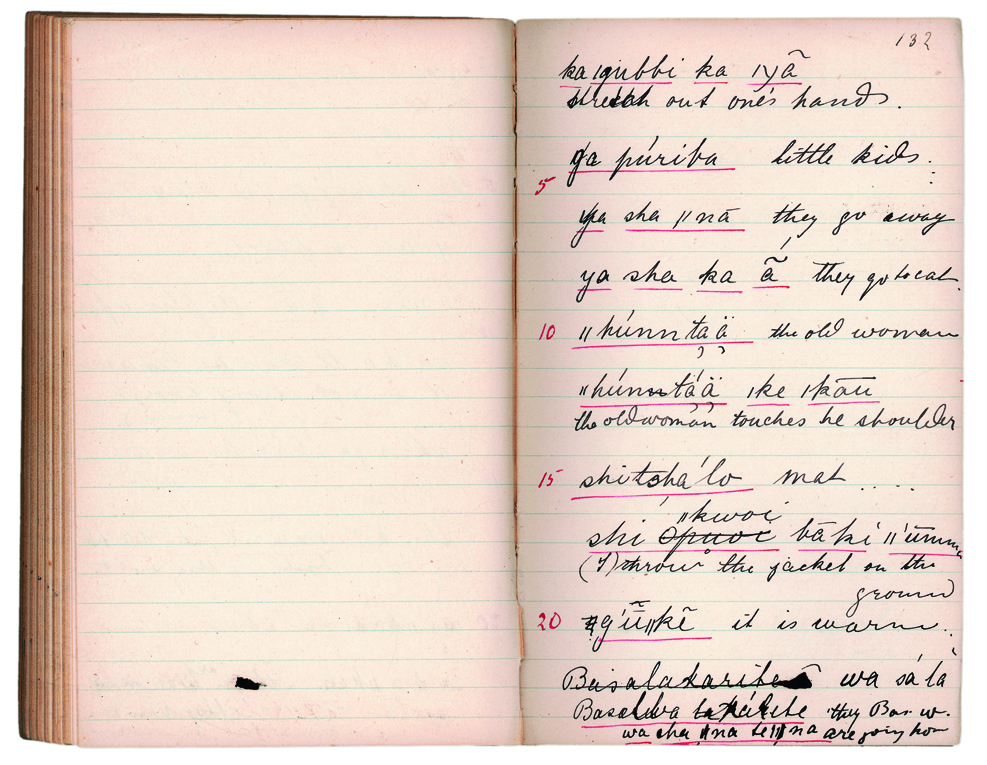 132
ka ǀgubbi ka ǀyã
stretch out one's hands.
ya púriba little kids.
5
ya sha ǁnā they go away
ya sha ka ã́ they go to eat.
10 ǁhúnntaä the old woman
ǁhúnntáä ǀke ǀkāū
the old woman touches he shoulder
15 shitshálo mat ....
ǁkwoi
shi bāki
(I) throw the jacket on the
ground
20 it is warm.
wa sá la
they Bas. w.
wa sha ǁna te ǁna are going how